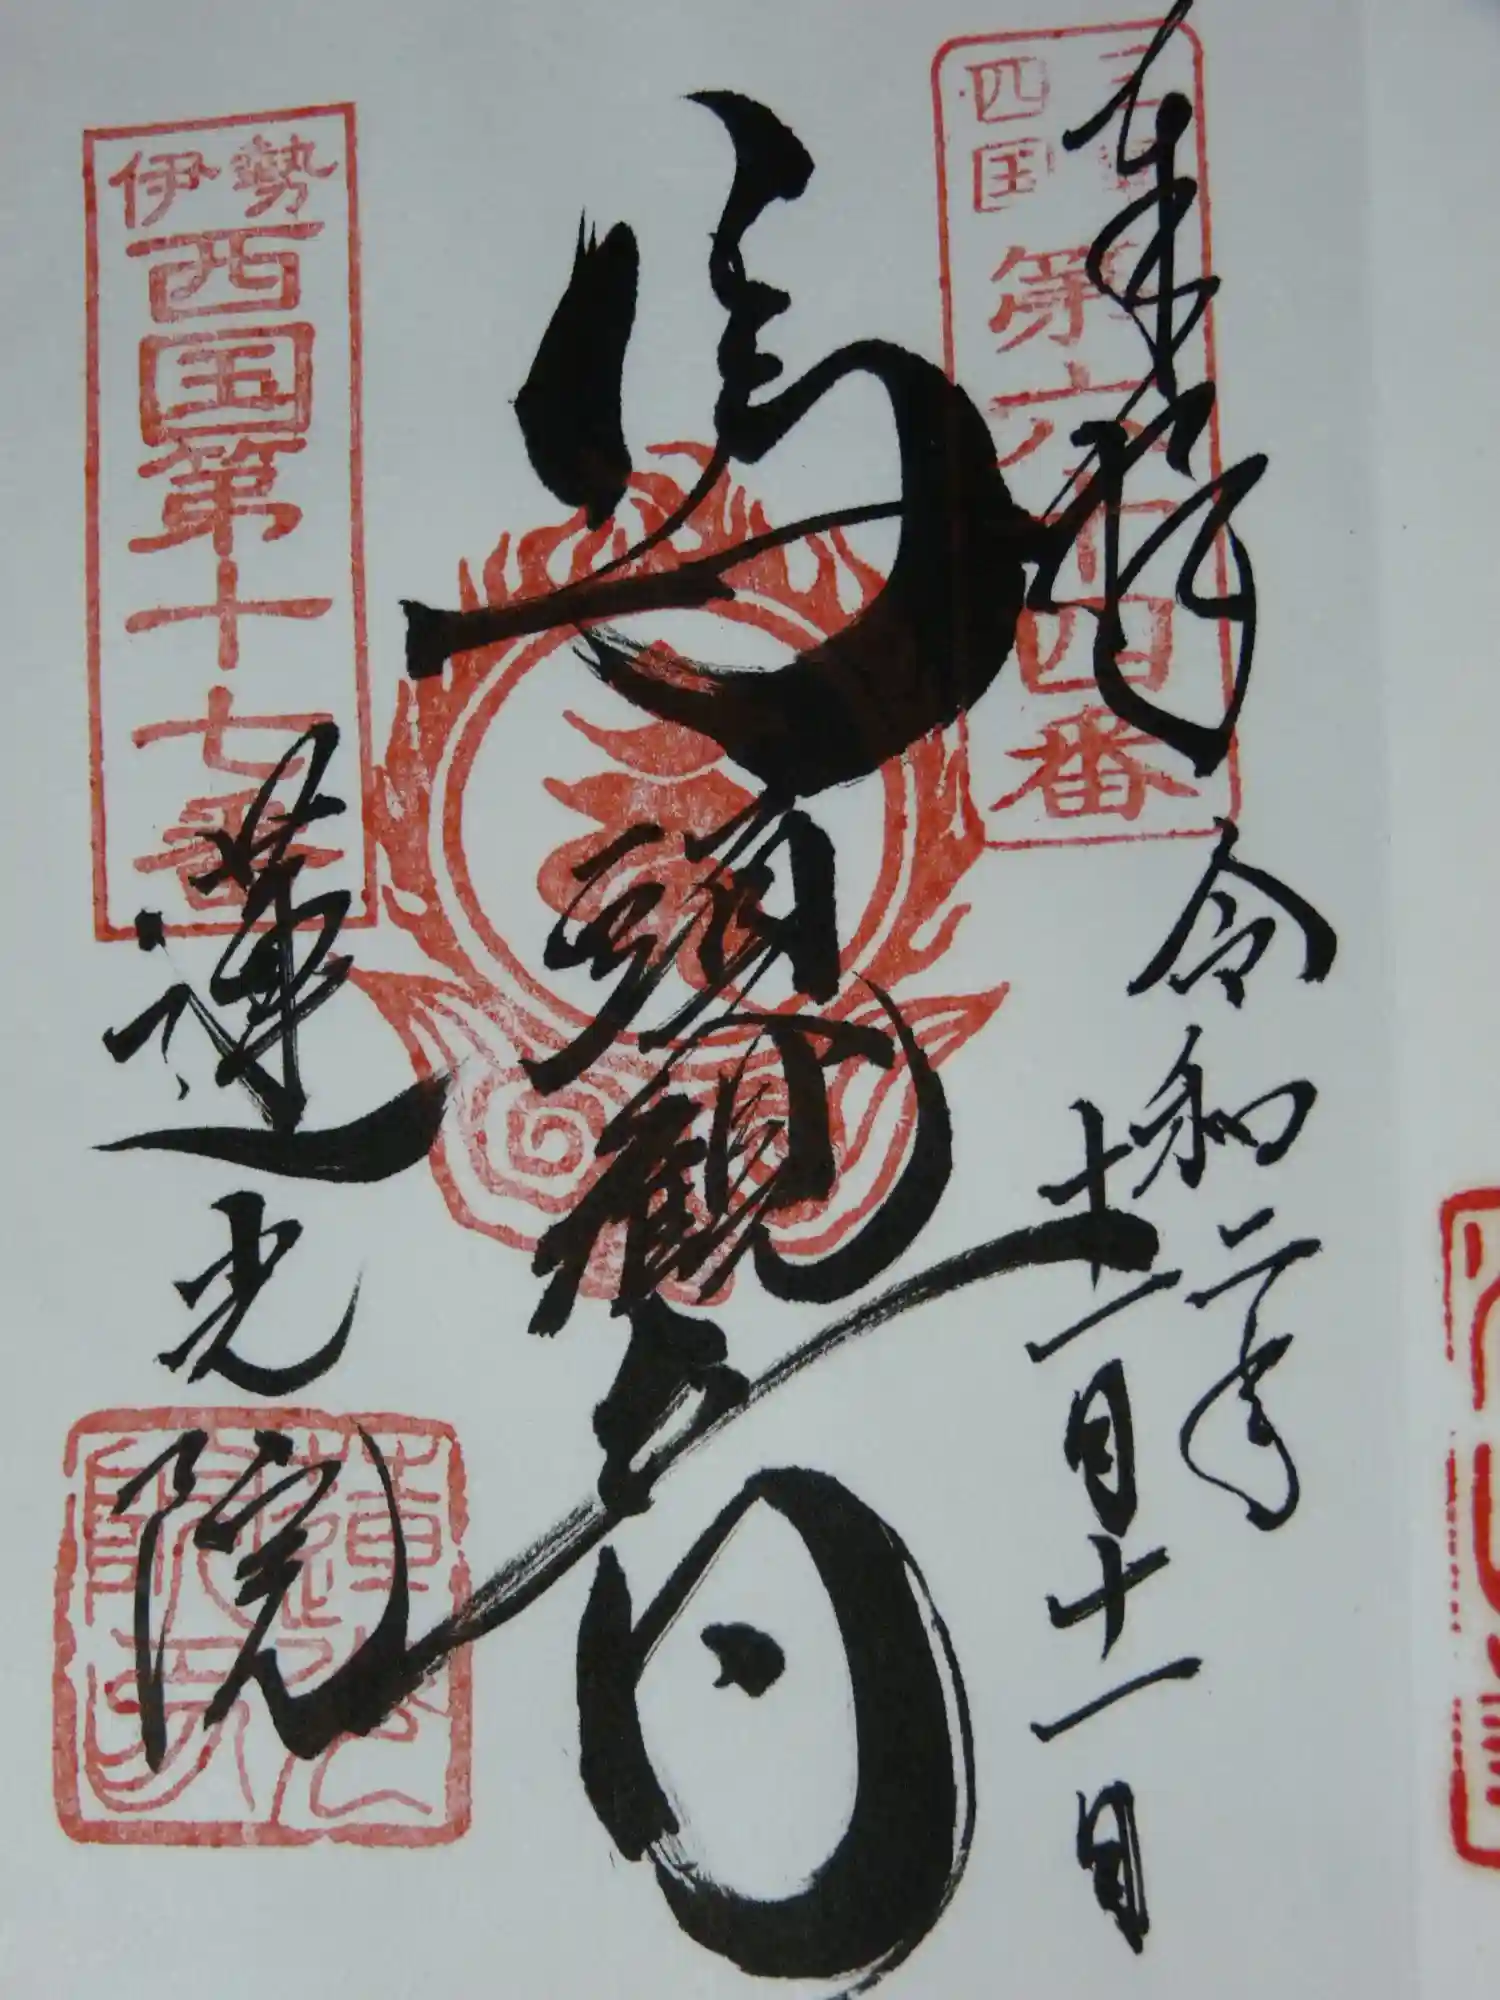 奉拝
四国
第六十四番
令和二年
十一月十一日
馬頭観音
伊勢
西国第十七番
蓮光院